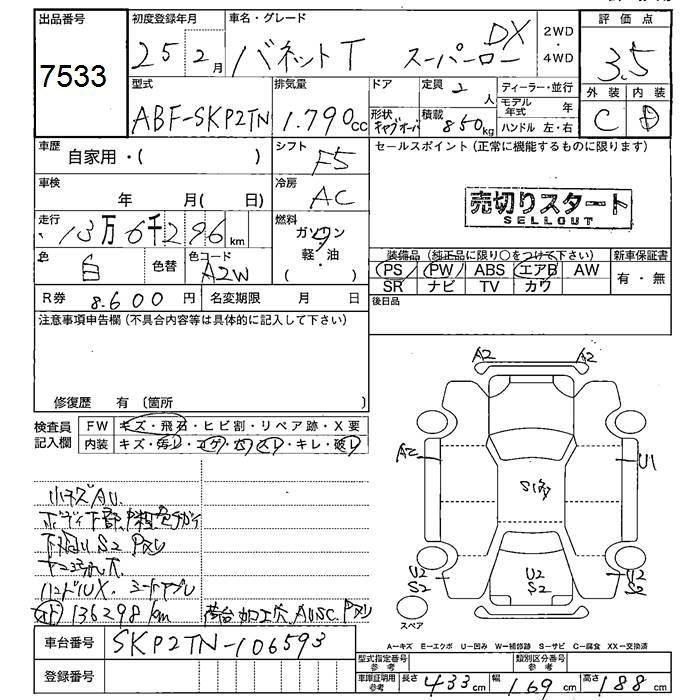 出品番号
7533
初度登録年月
25 2月
車名・グレード
バネットT スーパーロー DX
2WD
・
4WD
評価点
3.5
外装 内装
C D
型式
ABF-SKP2TN
排気量
1.790cc
ドア
定員
2人
形状
積載
850kg
ディーラー・並行
モデル年式 年
ハンドル 左・右
車歴
自家用・( )
シフト
F5
セールスポイント(正常に機能するものに限ります)
売切りスタート
SELLOUT
車検
年 月( 日)
冷房
AC
走行
13万6千296km
燃料
ガソリン
・
軽・油
( )
色
白
色替
色コード
A2W
装備品(純正品に限り○をつけて下さい)
PS PW ABS エアB AW
SR ナビ TV カワ
新車保証書
有・無
R券 8.600円
名変期限 月 日
後日品
注意事項申告欄(不具合内容等は具体的に記入して下さい)
修復歴 有 (箇所
検査員
記入欄
FW キズ・飛石・ヒビ割・リペア跡・X要
内装 キズ・汚レ・コゲ・穴・スレ・キレ・破レ
小キズAU
下回りS2
ハンドルX
136298km
荷台加工穴
A2 A2
A2 U1
S1
U2 S2
U2 S2
U2 S2
スペア
A-キズ E-エクボ U-凹み W-補修跡 S-サビ C-腐食 XX-交換済
車台番号 SKP2TN-106593
登録番号
型式指定番号 参考
類別区分番号 参考
車庫証明用 参考 長さ433cm 幅169cm 高さ188cm